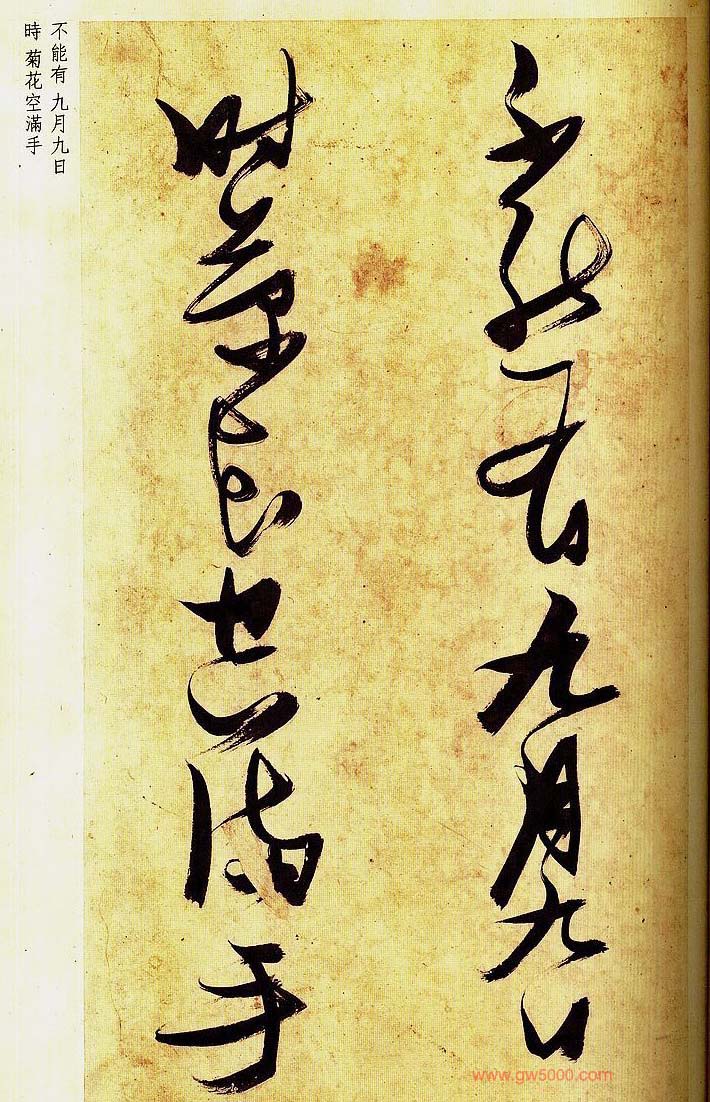 不能有九月九日
時菊花空滿手
不能有 九月九日
時 菊花空滿手
www.gw5000.com